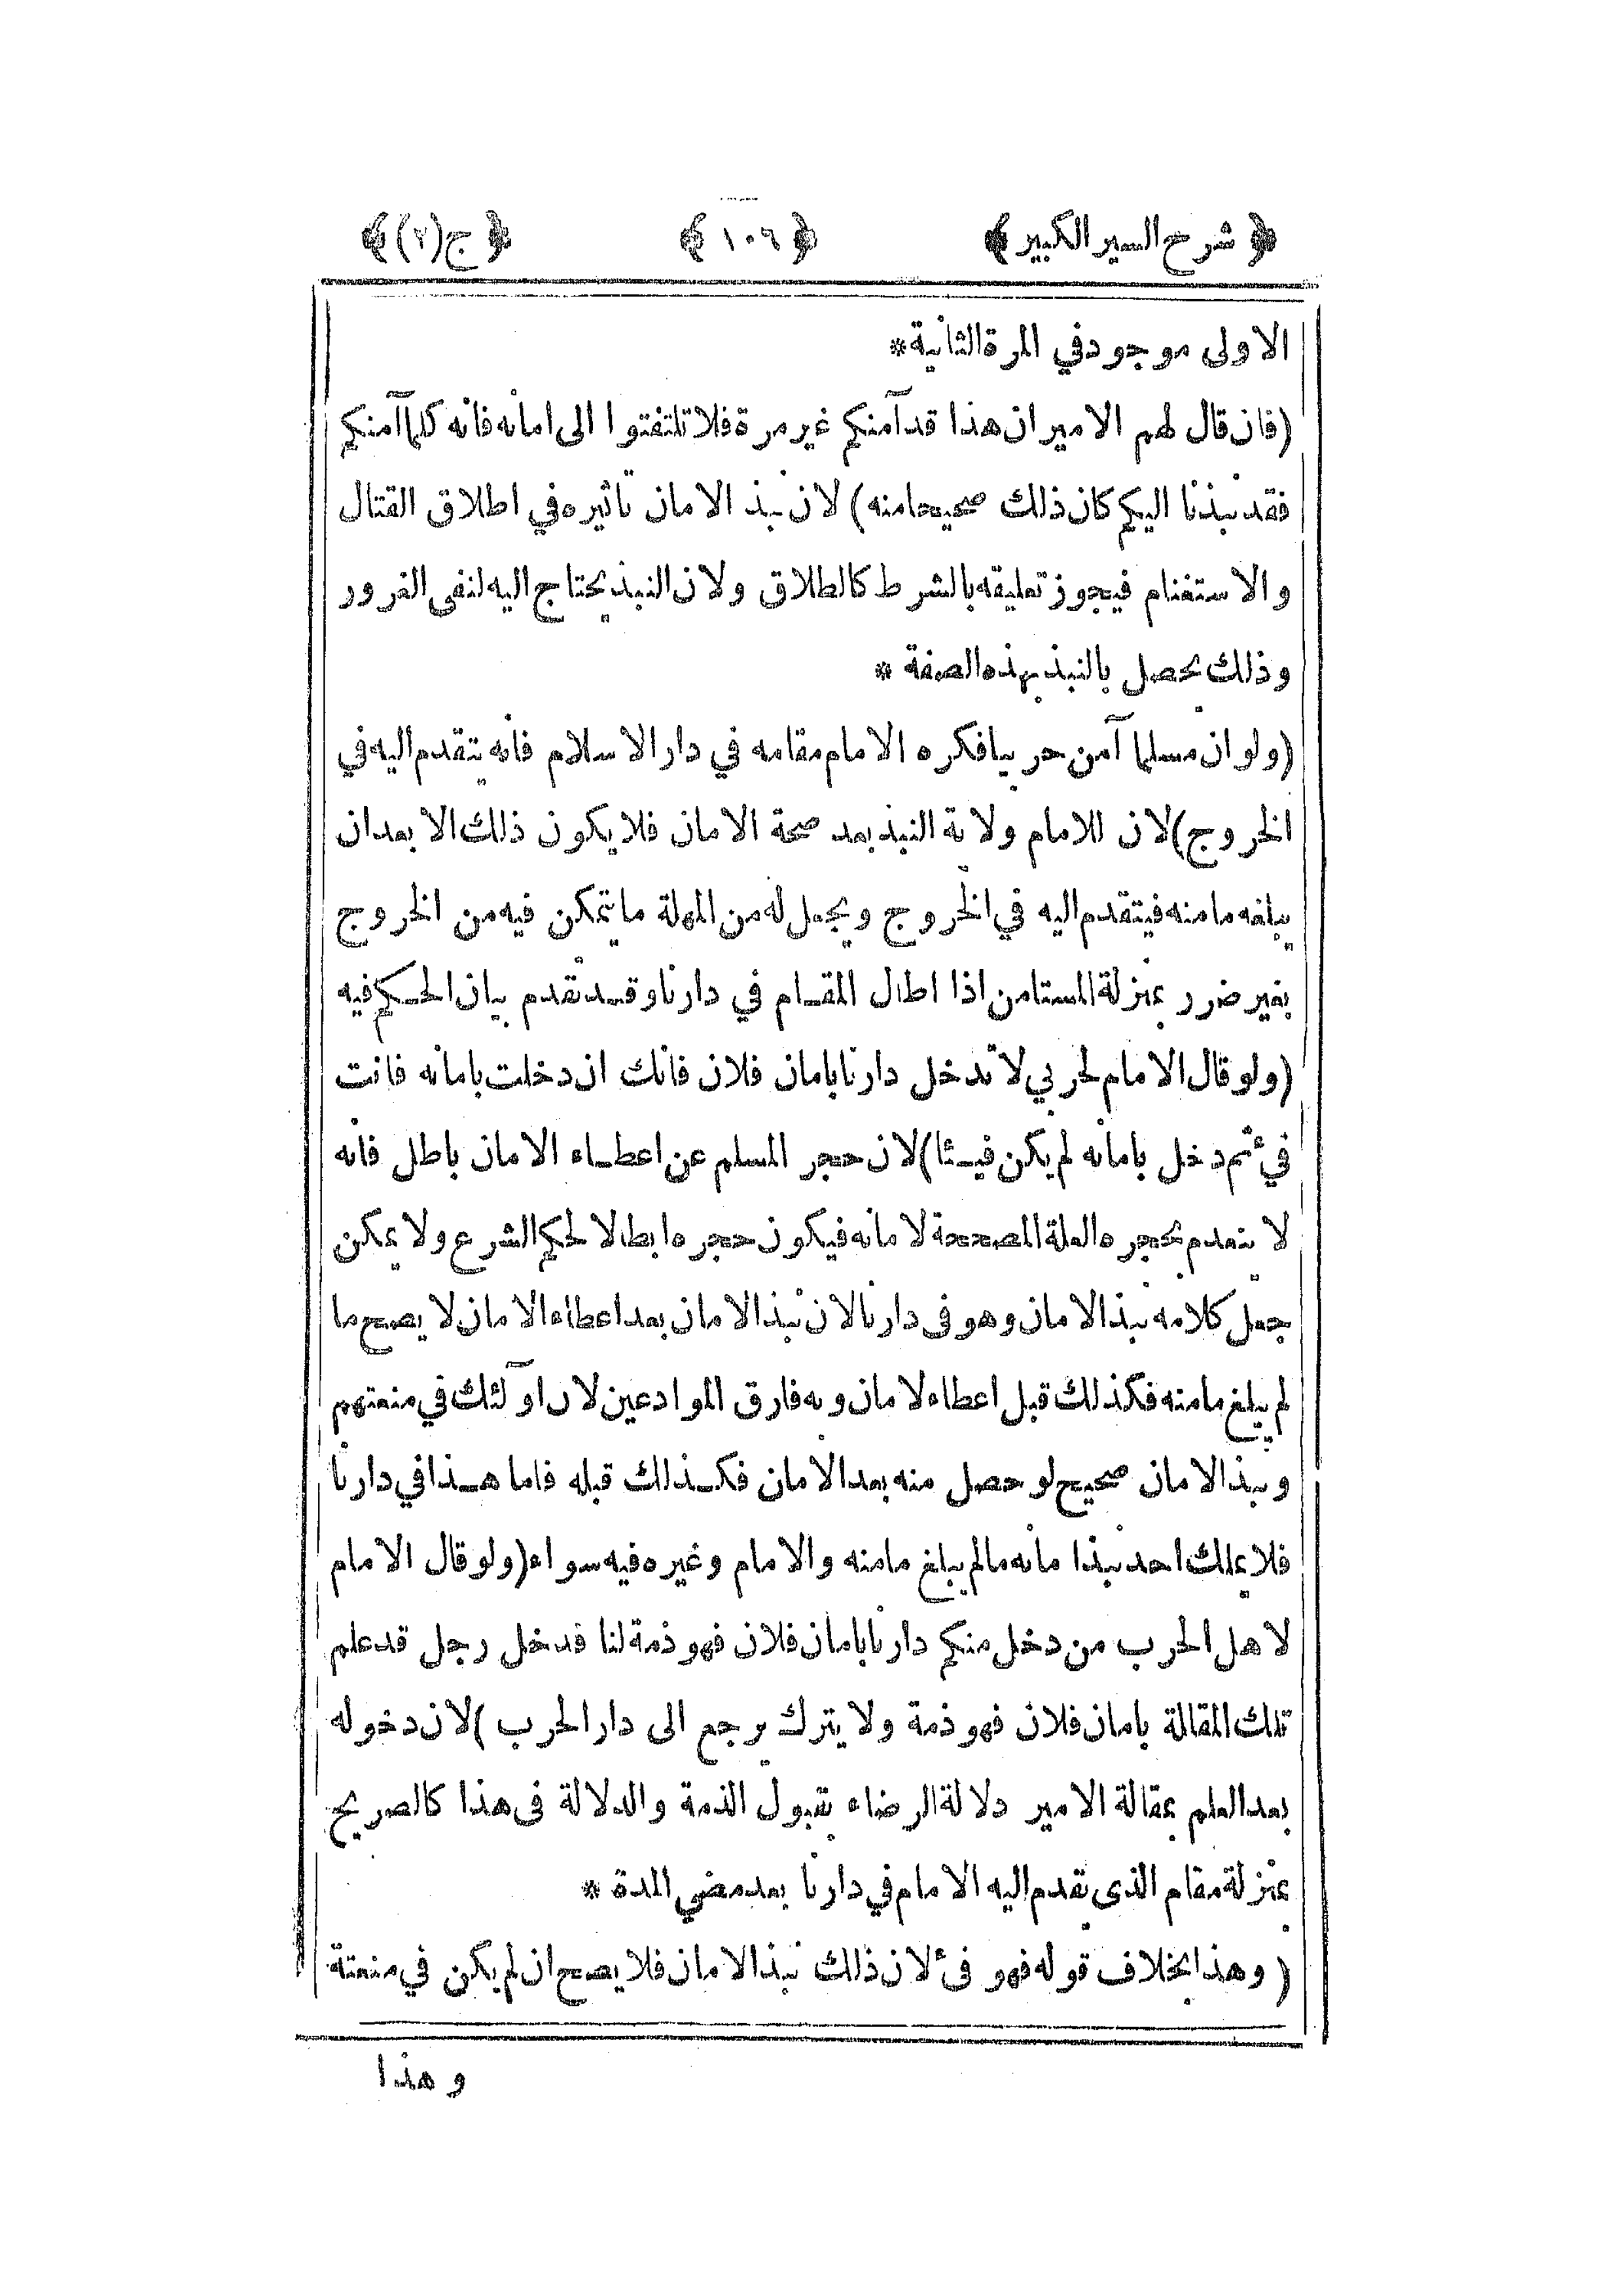 ﴿ شرح السير الكبير ﴾ ﴿ ١٠٦ ﴾ ﴿ ج (٢) ﴾
الاولى موجود في المرة الثانية *
(فان قال لهم الامير ان هذا قد آمنكم غير مرة فلا تلتفتوا الى امانه فانه كلما آمنكم
فقد نبذنا اليكم كان ذلك صحيحا منه) لان نبذ الامان تاثيره في اطلاق القتال
والاستغنام فيجوز تعليقه بالشرط كالطلاق ولان النبذ يحتاج اليه لنفى الغرور
وذلك يحصل بالنبذ بهذه الصفة *
(ولو ان مسلما آمن حربيا فكره الامام مقامه في دار الاسلام فانه يتقدم اليه في
الخروج) لان للامام ولاية النبذ بعد صحة الامان فلا يكون ذلك الا بعد ان
يبلغه مامنه فيتقدم اليه في الخروج ويجعل له من المهلة ما يتمكن فيه من الخروج
بغير ضرر بمنزلة المستامن اذا اطال المقام في دارنا وقد تقدم بيان الحكم فيه
(ولو قال الامام لحربي لا تدخل دارنا بامان فلان فانك ان دخلت بامانه فانت
في ء ثم دخل بامانه لم يكن فيئا) لان حجر المسلم عن اعطاء الامان باطل فانه
لا ينعدم بحجره العلة المصححة لامانه فيكون حجره ابطالا لحكم الشرع ولا يمكن
جعل كلامه نبذ الامان وهو فى دارنا لان نبذ الامان بعد اعطاء الامان لا يصح ما
لم يبلغ مامنه فكذلك قبل اعطاء لامان وبه فارق الموادعين لان اولئك في منعتهم
ونبذ الامان صحيح لو حصل منه بعد الامان فكذلك قبله فاما هذا في دارنا
فلا يملك احد نبذ امانه مالم يبلغ مامنه والامام وغيره فيه سواء (ولو قال الامام
لاهل الحرب من دخل منكم دارنا بامان فلان فهو ذمة لنا فدخل رجل قد علم
تلك المقالة بامان فلان فهو ذمة ولا يترك يرجع الى دار الحرب) لان دخوله
بعد العلم بمقالة الامير دلالة الرضاء بقبول الذمة والدلالة فى هذا كالصريح
بمنزلة مقام الذى تقدم اليه الامام في دارنا بعد مضي المدة *
(وهذا بخلاف قوله فهو فىء لان ذلك نبذ الامان فلا يصح ان لم يكن في منعتة
وهذا